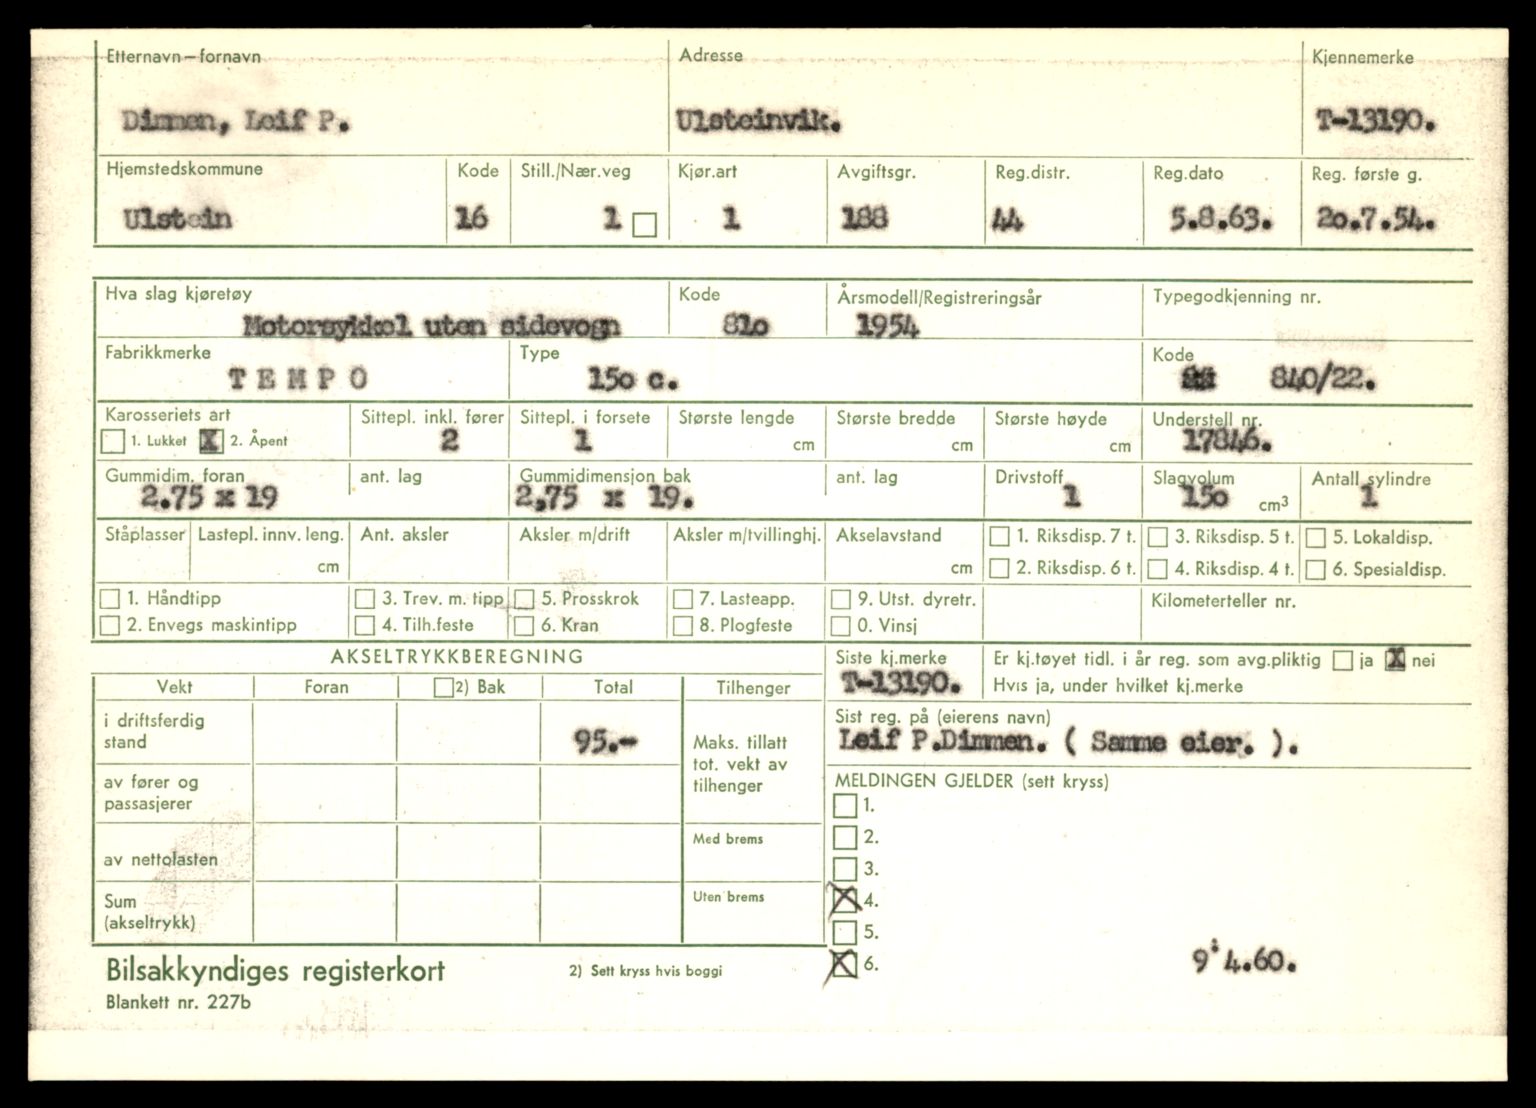 Etternavn–fornavn Adresse Kjennemerke
Dimmen, Leif P. Ulsteinvik. T-13190.
Hjemstedskommune Kode Still./Nær.veg Kjør.art Avgiftsgr. Reg.distr. Reg.dato Reg. første g.
Ulstein 16 1 1 188 44 5.8.63. 2o.7.54.
Hva slag kjøretøy Kode Årsmodell/Registreringsår Typegodkjenning nr.
Motorsykkel uten sidevogn 81o 1954
Fabrikkmerke Type Kode
T E M P O 15o c. 840/22.
Karosseriets art Sittepl. inkl. fører Sittepl. i forsete Største lengde Største bredde Største høyde Understell nr.
1. Lukket X 2. Åpent 2 1 cm cm cm 17846.
Gummidim. foran ant. lag Gummidimensjon bak ant. lag Drivstoff Slagvolum Antall sylindre
2.75 x 19 2,75 x 19. 1 15o cm3 1
Ståplasser Lastepl. innv. leng. Ant. aksler Aksler m/drift Aksler m/tvillinghj. Akselavstand 1. Riksdisp. 7 t. 3. Riksdisp. 5 t. 5. Lokaldisp.
cm cm 2. Riksdisp. 6 t. 4. Riksdisp. 4 t. 6. Spesialdisp.
1. Håndtipp 3. Trev. m. tipp 5. Prosskrok 7. Lasteapp. 9. Utst. dyretr. Kilometerteller nr.
2. Envegs maskintipp 4. Tilh.feste 6. Kran 8. Plogfeste 0. Vinsj
AKSELTRYKKBEREGNING Siste kj.merke Er kj.tøyet tidl. i år reg. som avg.pliktig ja X nei
T-13190. Hvis ja, under hvilket kj.merke
Vekt Foran 2) Bak Total Tilhenger
i driftsferdig stand 95.- Maks. tillatt tot. vekt av tilhenger
Sist reg. på (eierens navn)
Leif P.Dimmen. ( Samme eier. ).
av fører og passasjerer MELDINGEN GJELDER (sett kryss)
1.
2.
Med brems
av nettolasten 3.
Sum (akseltrykk) Uten brems X 4.
5.
X 6. 9.4.60.
Bilsakkyndiges registerkort 2) Sett kryss hvis boggi
Blankett nr. 227b